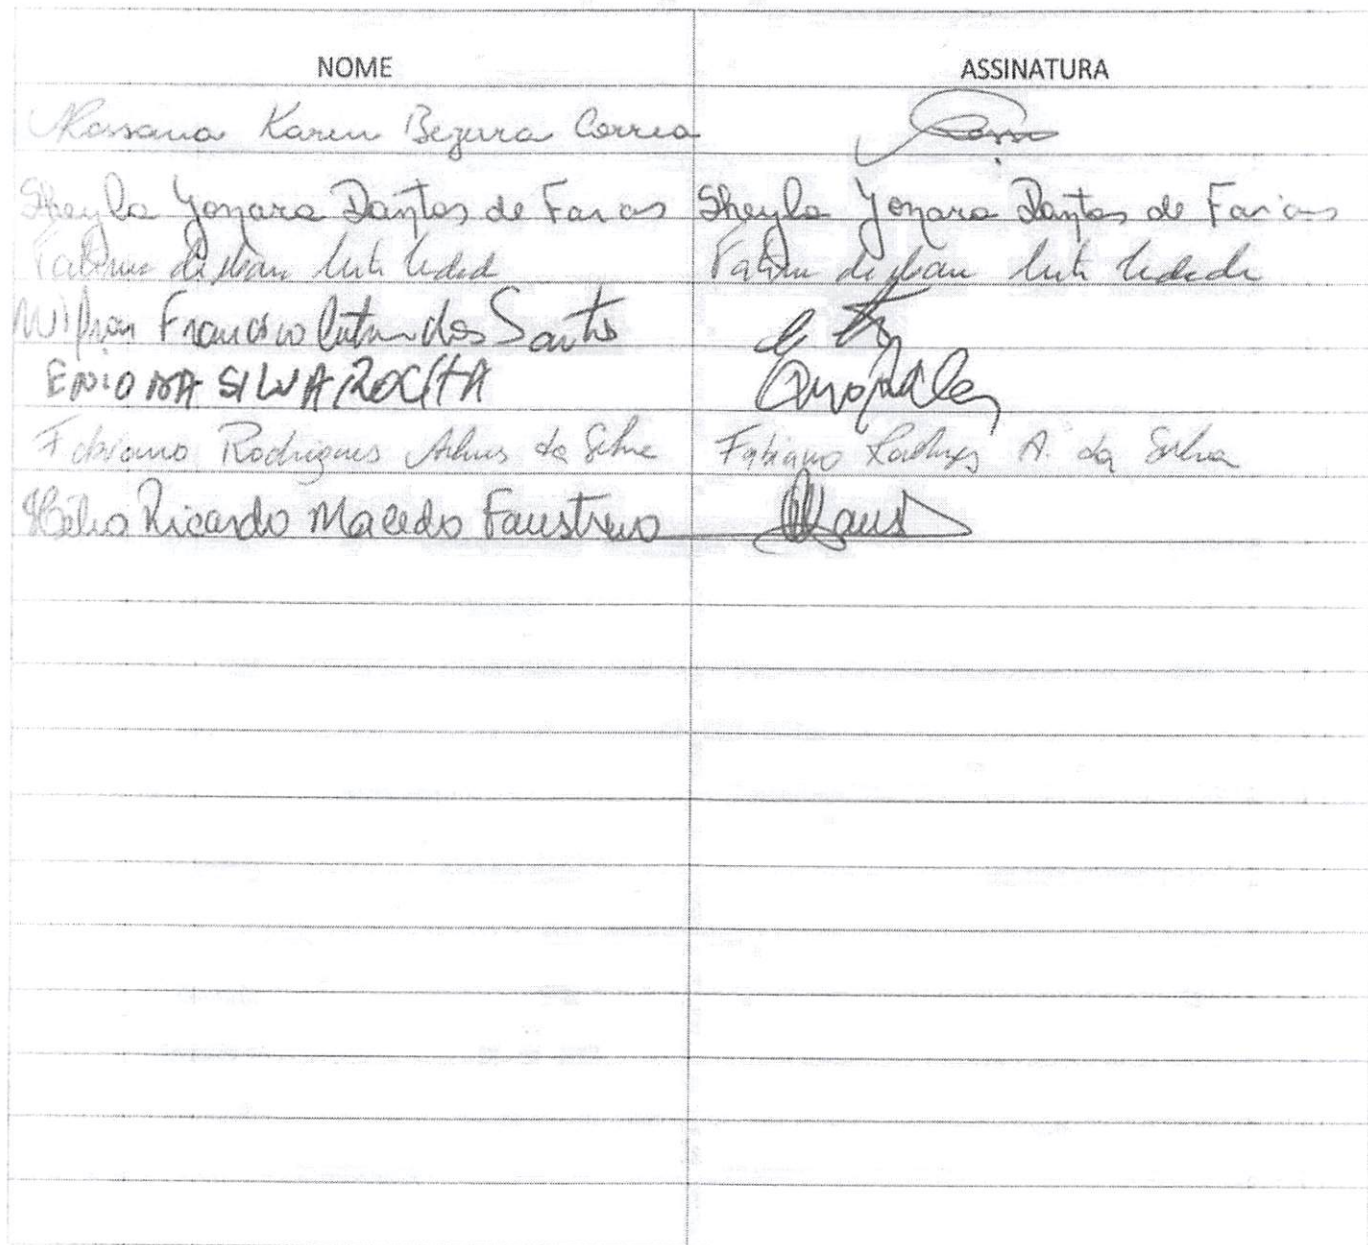 NOME ASSINATURA
Rossana Karen Bezerra Correa
Sheyla Yonara Dantas de Farias Sheyla Yonara Dantas de Farias
Fatima de Fatima de
Francisco dos Santos
ENIO DA SILVA ROCHA
Fabiano Rodrigues Alves da Silva Fabiano A. da Silva
Hélio Ricardo Macedo Faustino